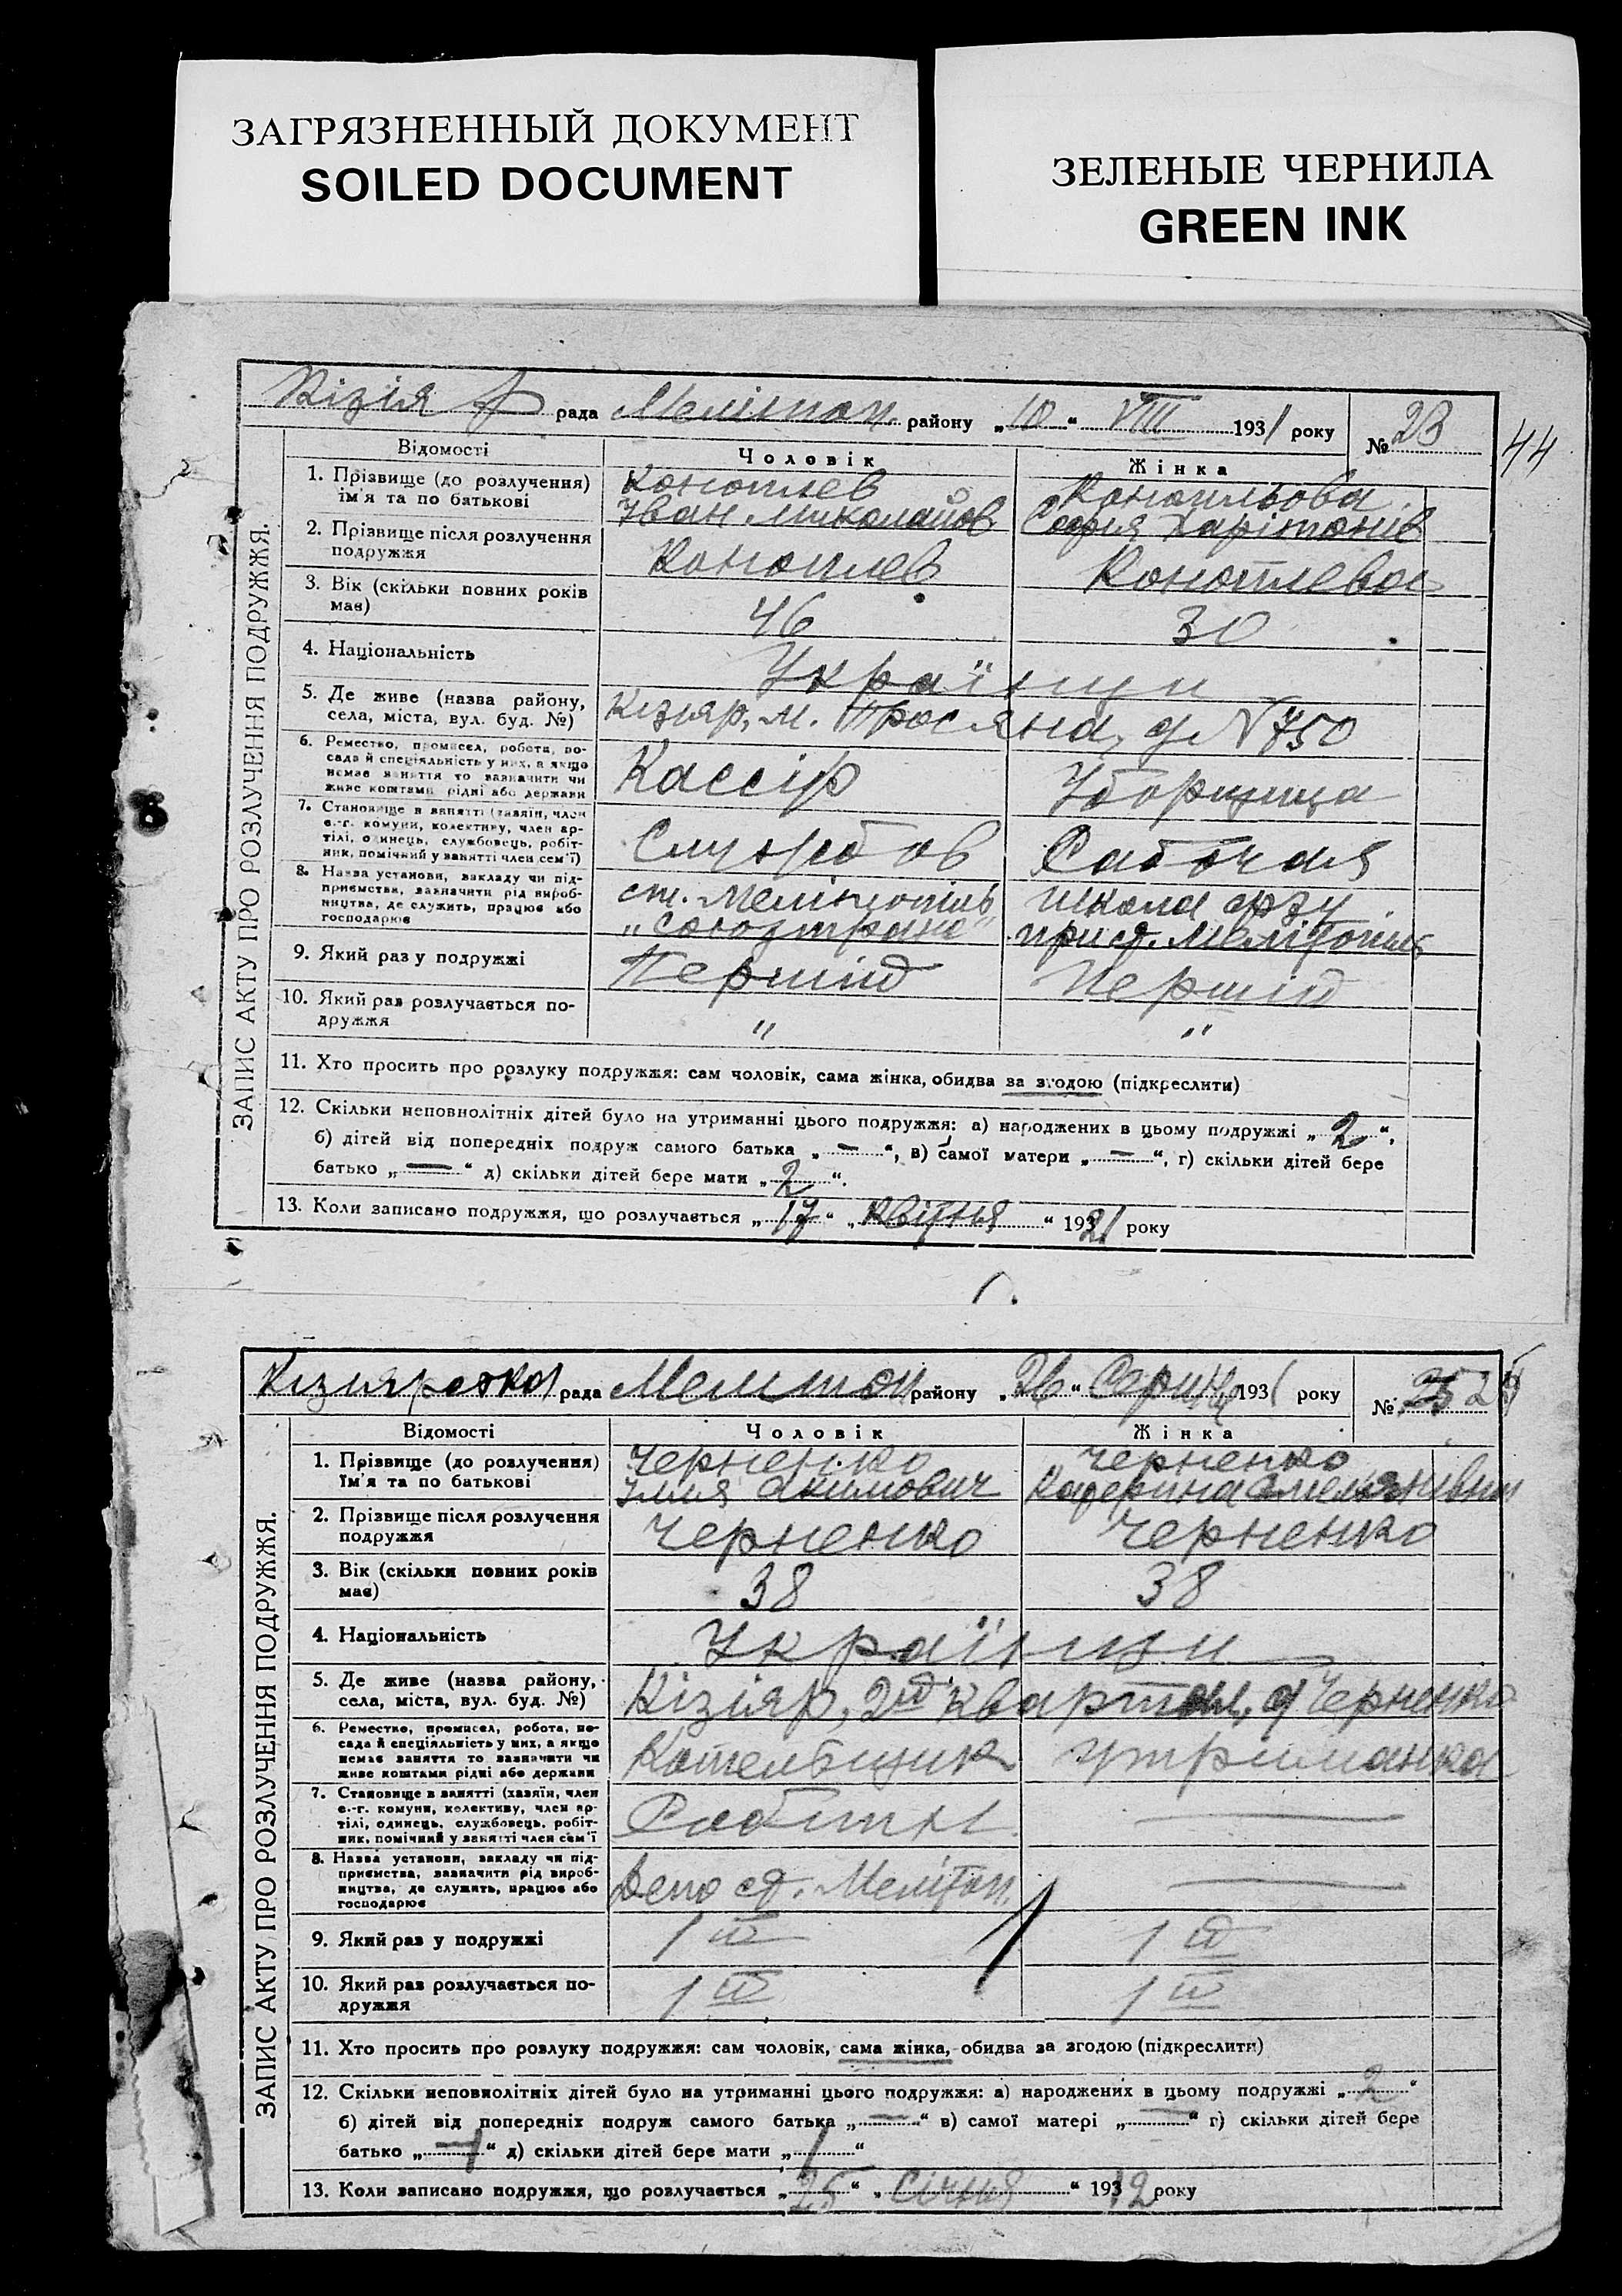 ЗАГРЯЗНЕННЫЙ ДОКУМЕНТ
SOILED DOCUMENT
ЗЕЛЕНЫЕ ЧЕРНИЛА
GREEN INK
44
ЗАПИС АКТУ ПРО РОЗЛУЧЕННЯ ПОДРУЖЖЯ.
рада Меліտոп. району „10“ VIII 1931 року № 23
Відомості Чоловік Жінка
1. Прізвище (до розлучення) Коноплев Конопльова
ім'я та по батькові Іван Миколайов Софія Харітонів
2. Прізвище після розлучення Коноплев Коноплева
подружжя
3. Вік (скільки повних років 46 30
має)
4. Національність Українці
5. Де живе (назва району, Кізіяр, м. д. №750
села, міста, вул. буд. №)
6. Ремество, промисел, робота, по- Кассір Уборщица
сада й спеціяльність у них, а якщо
немає заняття то зазначити чи
живе коштами рідні або держави
7. Становище в занятті (хазяїн, член Службов Рабочая
с.-г. комуни, колективу, член ар-
тілі, одинець, службовець, робіт-
ник, помічний у занятті член сем'ї)
8. Назва установи, закладу чи під- ст. Мелітопіль школа фзу
приємства, зазначити рід вироб- „Союзтранс“ при ст. Мелітопіль
ництва, де служить, працює або
господарює
9. Який раз у подружжі Перший Перший
10. Який раз розлучається по- " "
дружжя
11. Хто просить про розлуку подружжя: сам чоловік, сама жінка, обидва за згодою (підкреслити)
12. Скільки неповнолітніх дітей було на утриманні цього подружжя: а) народжених в цьому подружжі „2“,
б) дітей від попередніх подруж самого батька „—“, в) самої матери „—“, г) скільки дітей бере
батько „—“ д) скільки дітей бере мати „2“.
13. Коли записано подружжя, що розлучається „17“ „квітня“ 1921 року
ЗАПИС АКТУ ПРО РОЗЛУЧЕННЯ ПОДРУЖЖЯ.
Кізіярська рада Мелітоп району „26“ Серпня 1931 року №
Відомості Чоловік Жінка
1. Прізвище (до розлучення) Черненко Черненко
їм'я та по батькові Ілля Акимович Катерина Омелянівна
2. Прізвище після розлучення Черненко Черненко
подружжя
3. Вік (скільки повних років 38 38
має)
4. Національність Українці
5. Де живе (назва району, Кізіяр, 2ий квартал, д Черненко
села, міста, вул. буд. №)
6. Ремество, промисел, робота, по- Котельщик утриманка
сада й спеціяльність у них, а якщо
немає заняття то зазначити чи
живе коштами рідні або держави
7. Становище в занятті (хазяїн, член Робітн —
с.-г. комуни, колективу, член ар-
тілі, одинець, службовець, робіт-
ник, помічний у занятті член сем'ї
8. Назва установи, закладу чи під- Депо ст. Мелітоп. —
приємства, зазначити рід вироб-
ництва, де служить, працює або
господарює
9. Який раз у подружжі 1й 1й
10. Який раз розлучається по- 1й 1й
дружжя
11. Хто просить про розлуку подружжя: сам чоловік, сама жінка, обидва за згодою (підкреслити)
12. Скільки неповнолітніх дітей було на утриманні цього подружжя: а) народжених в цьому подружжі „2“
б) дітей від попередніх подруж самого батька „—“ в) самої матері „—“ г) скільки дітей бере
батько „1“ д) скільки дітей бере мати „1“
13. Коли записано подружжя, що розлучається „25“ „Січня“ 1912 року